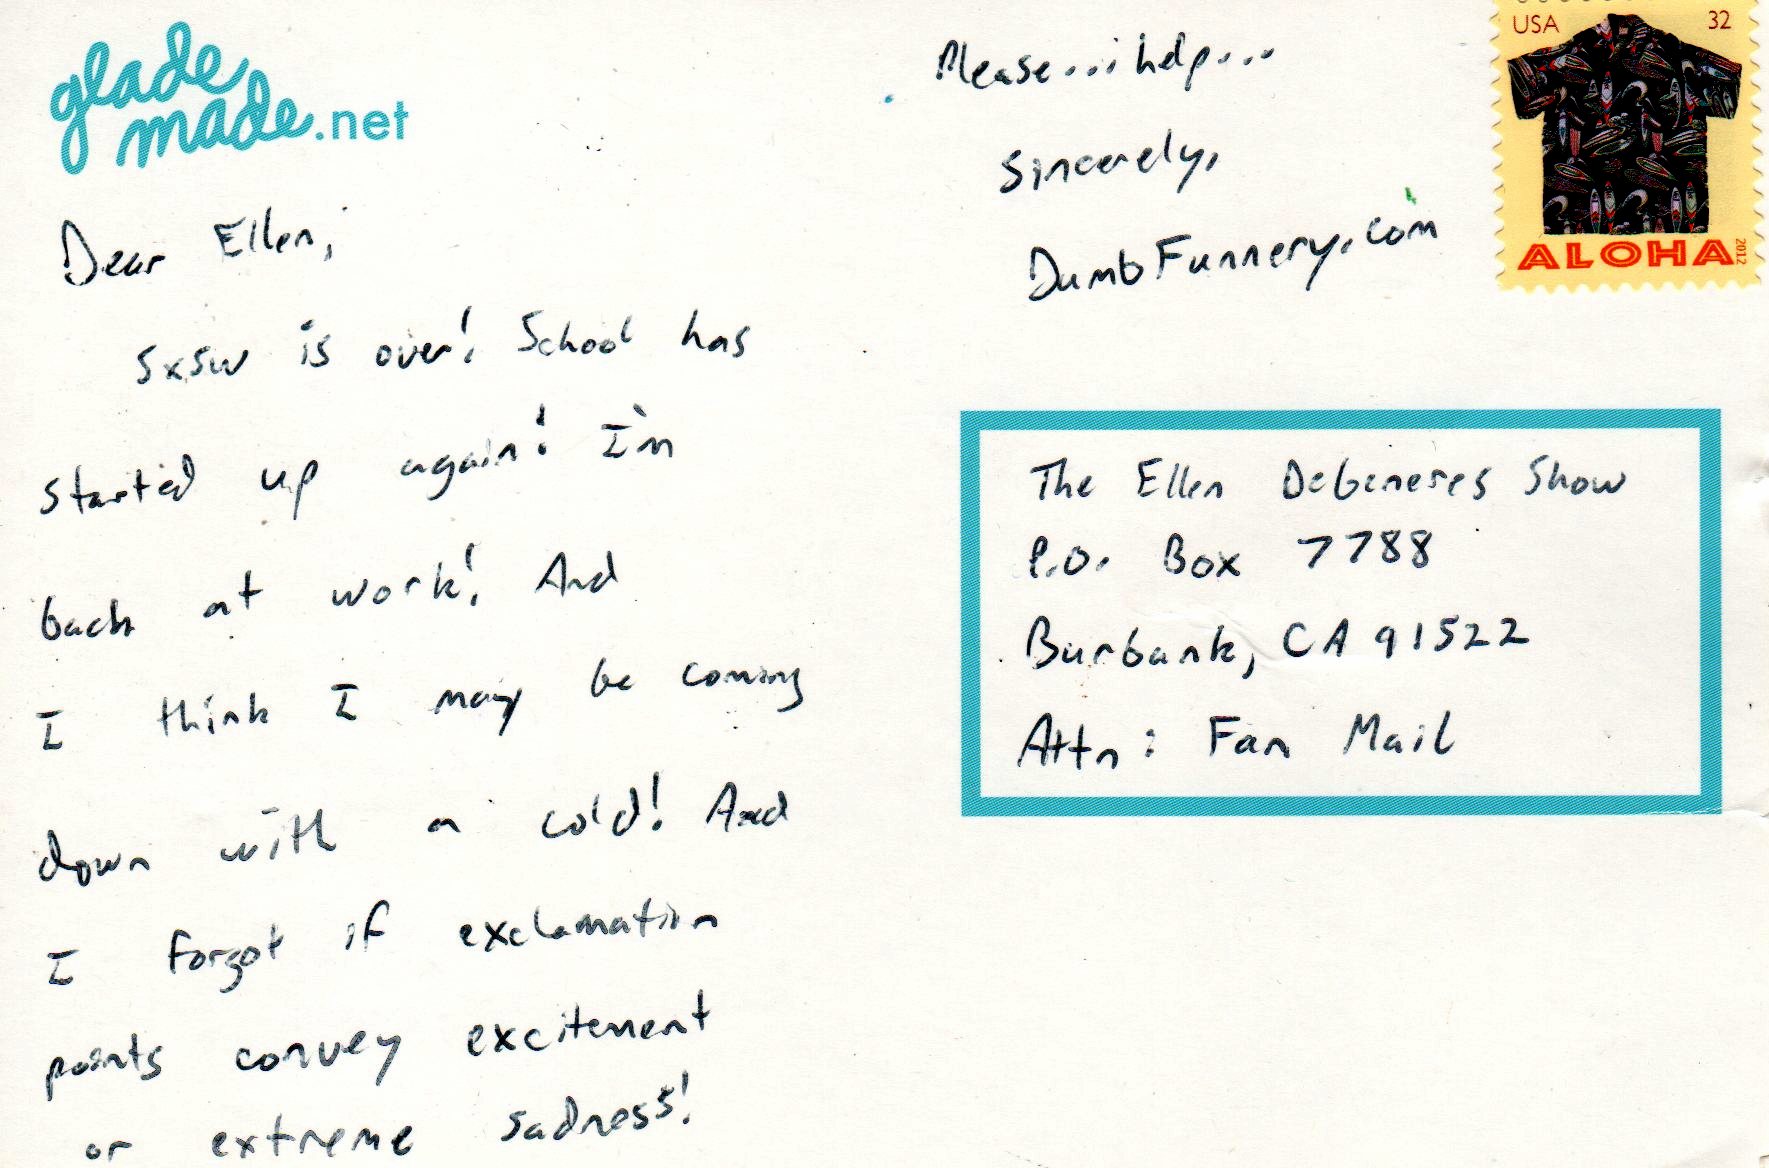 glade
made.net
Dear Ellen,
SXSW is over! School has
started up again! I'm
back at work! And
I think I may be coming
down with a cold! And
I forgot if exclamation
points convey excitement
or extreme sadness!
Please...help...
Sincerely,
DumbFunnery.com
USA 32
ALOHA 2012
The Ellen DeGeneres Show
P.O. Box 7788
Burbank, CA 91522
Attn: Fan Mail